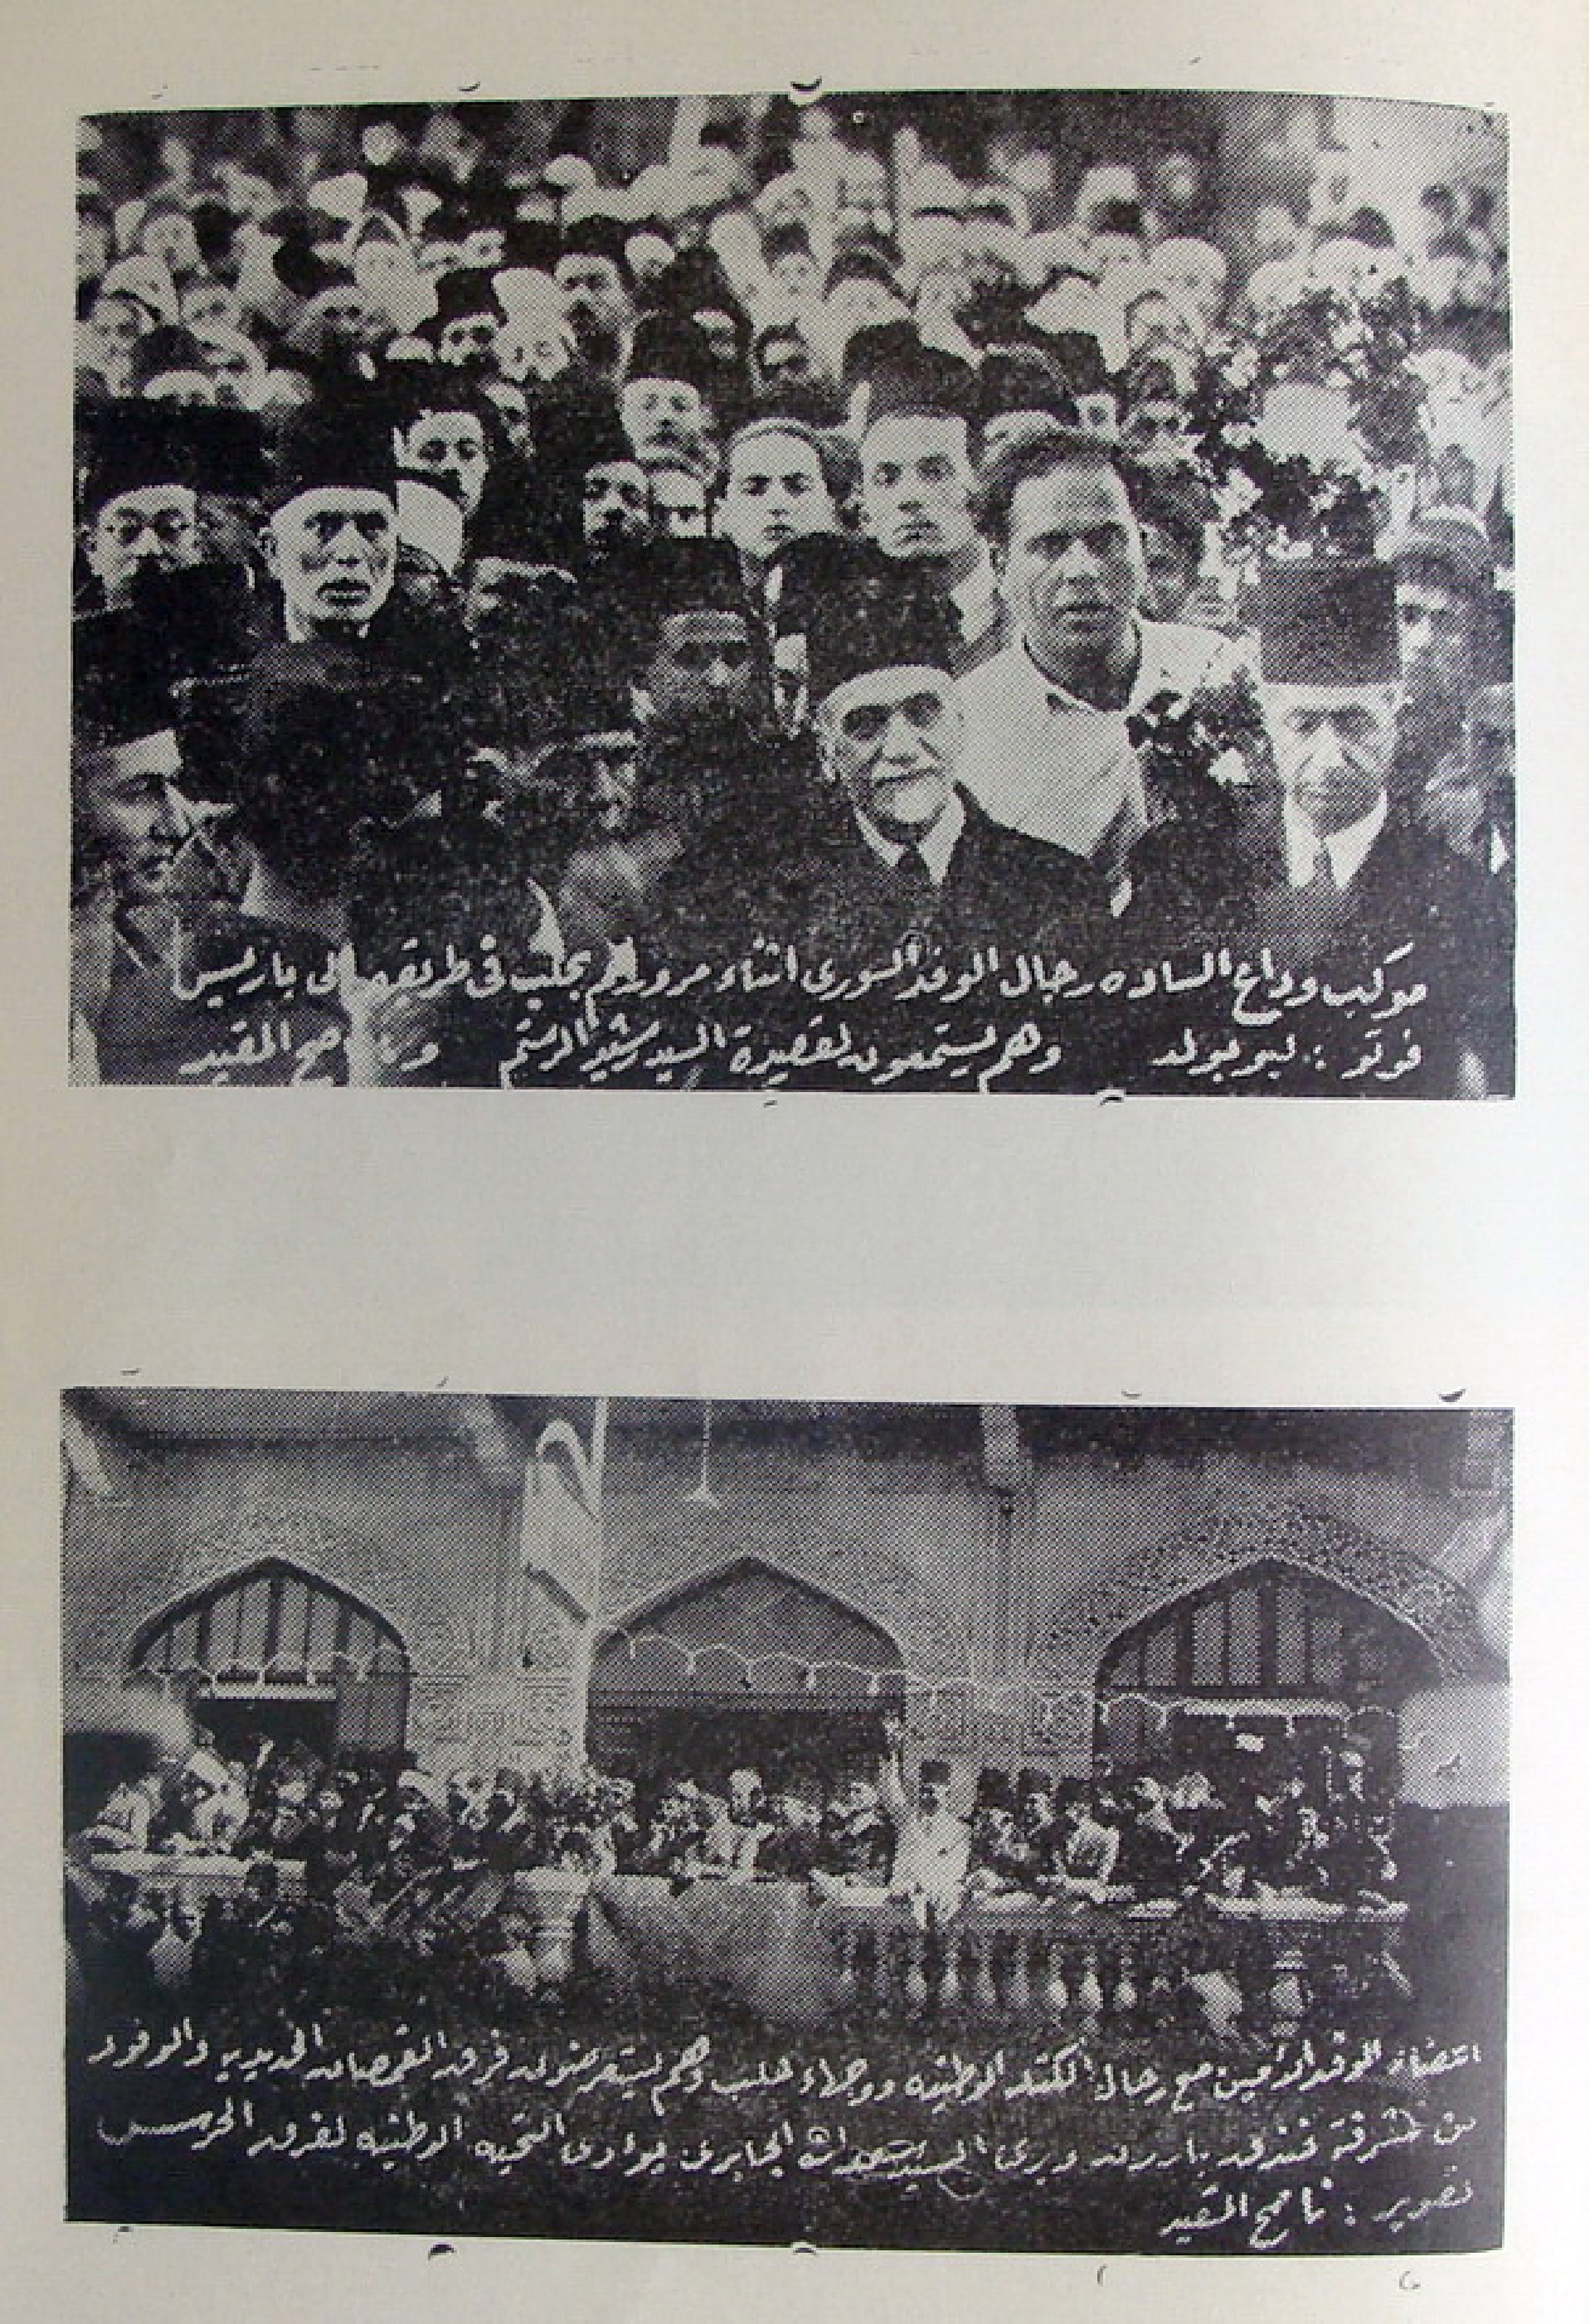 موكب وداع الساده رجال الوفد السورى اثناء مرورهم بحلب فى طريقهم الى باريس
فوتو : ليوبولد وهم يستمعون لقصيدة السيد رشيد الرستم وناصح القيد
اعضاء الوفد مع رجال الكتله الوطنيه ووجهاء حلب وهم يستعرضون فرق القمصان الحديديه والوفود
من شرفة فندق بارون ويرى السيد سعد الله الجابرى يؤدى التحيه الوطنيه لفرق الحرس
تصوير : ناصح القيد